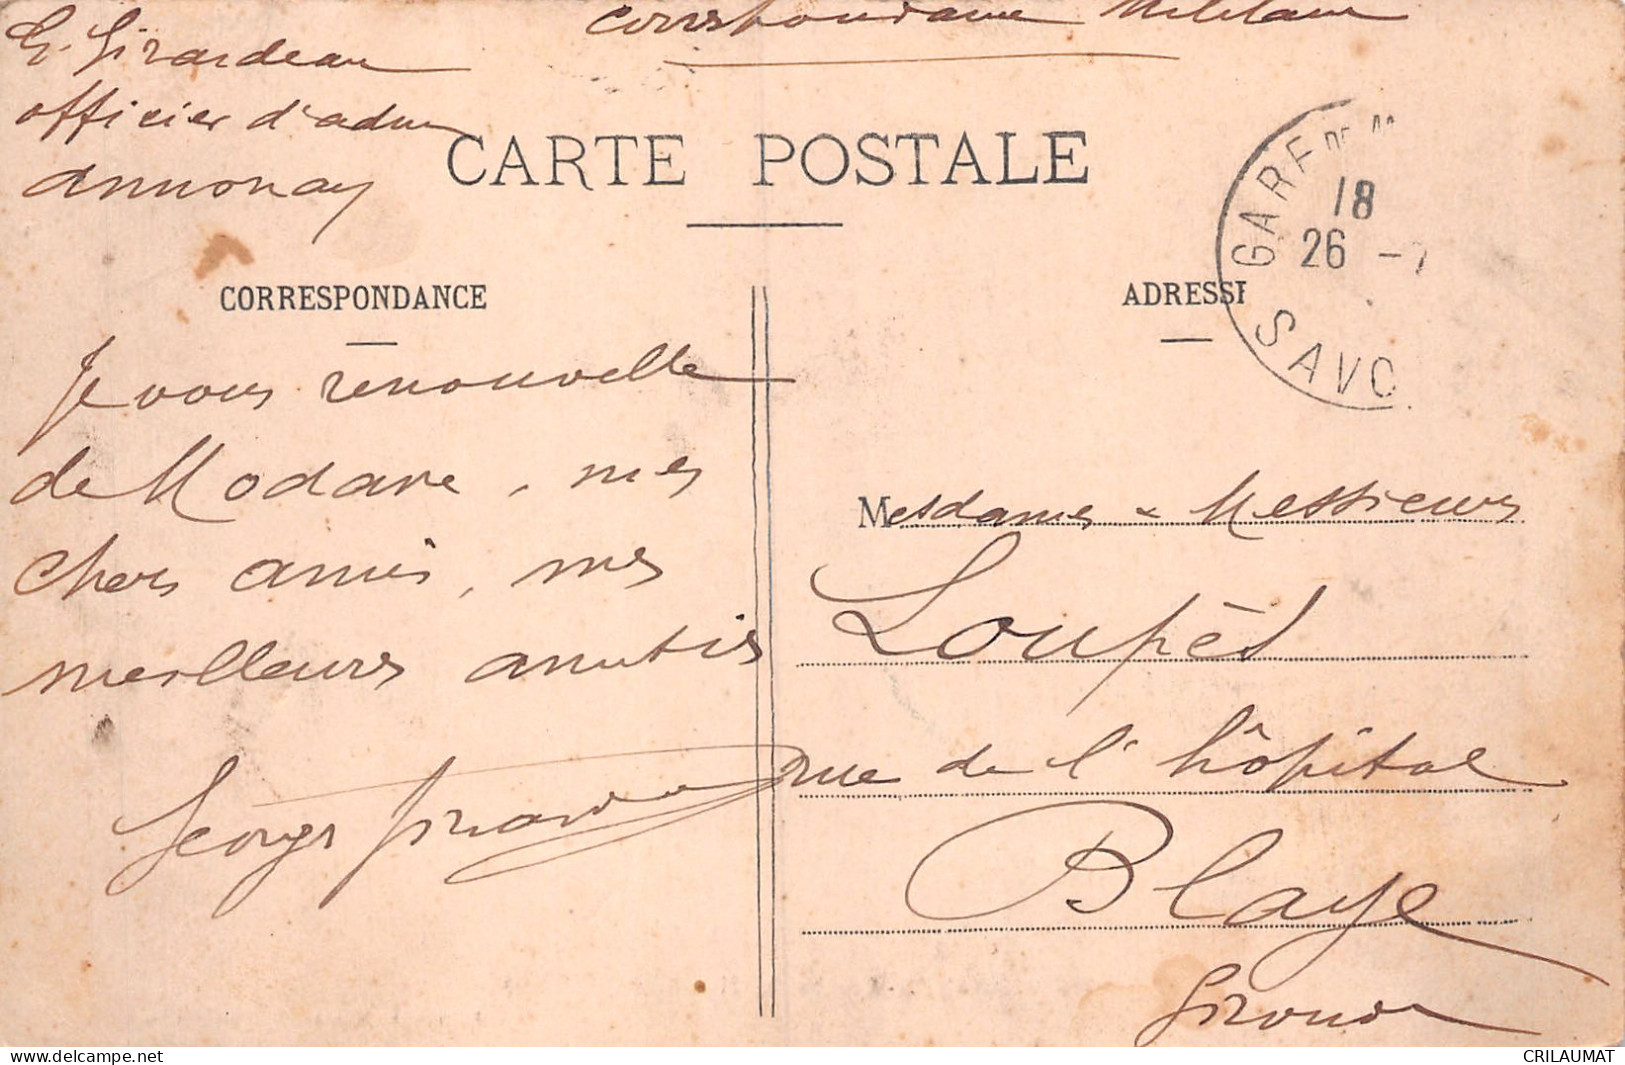 Correspondance Militaire
G. Girardeau
officier d'adm
Annonay
CARTE POSTALE
GARE DE M
18
26 -7
SAVO
CORRESPONDANCE
ADRESSE
Je vous renouvelle
de Modane, mes
chers amis, mes
meilleurs amitiés
Georges Girardeau
Mesdames & Messieurs
Loupès
rue de l'hôpital
Blaye
Gironde
CRILAUMAT